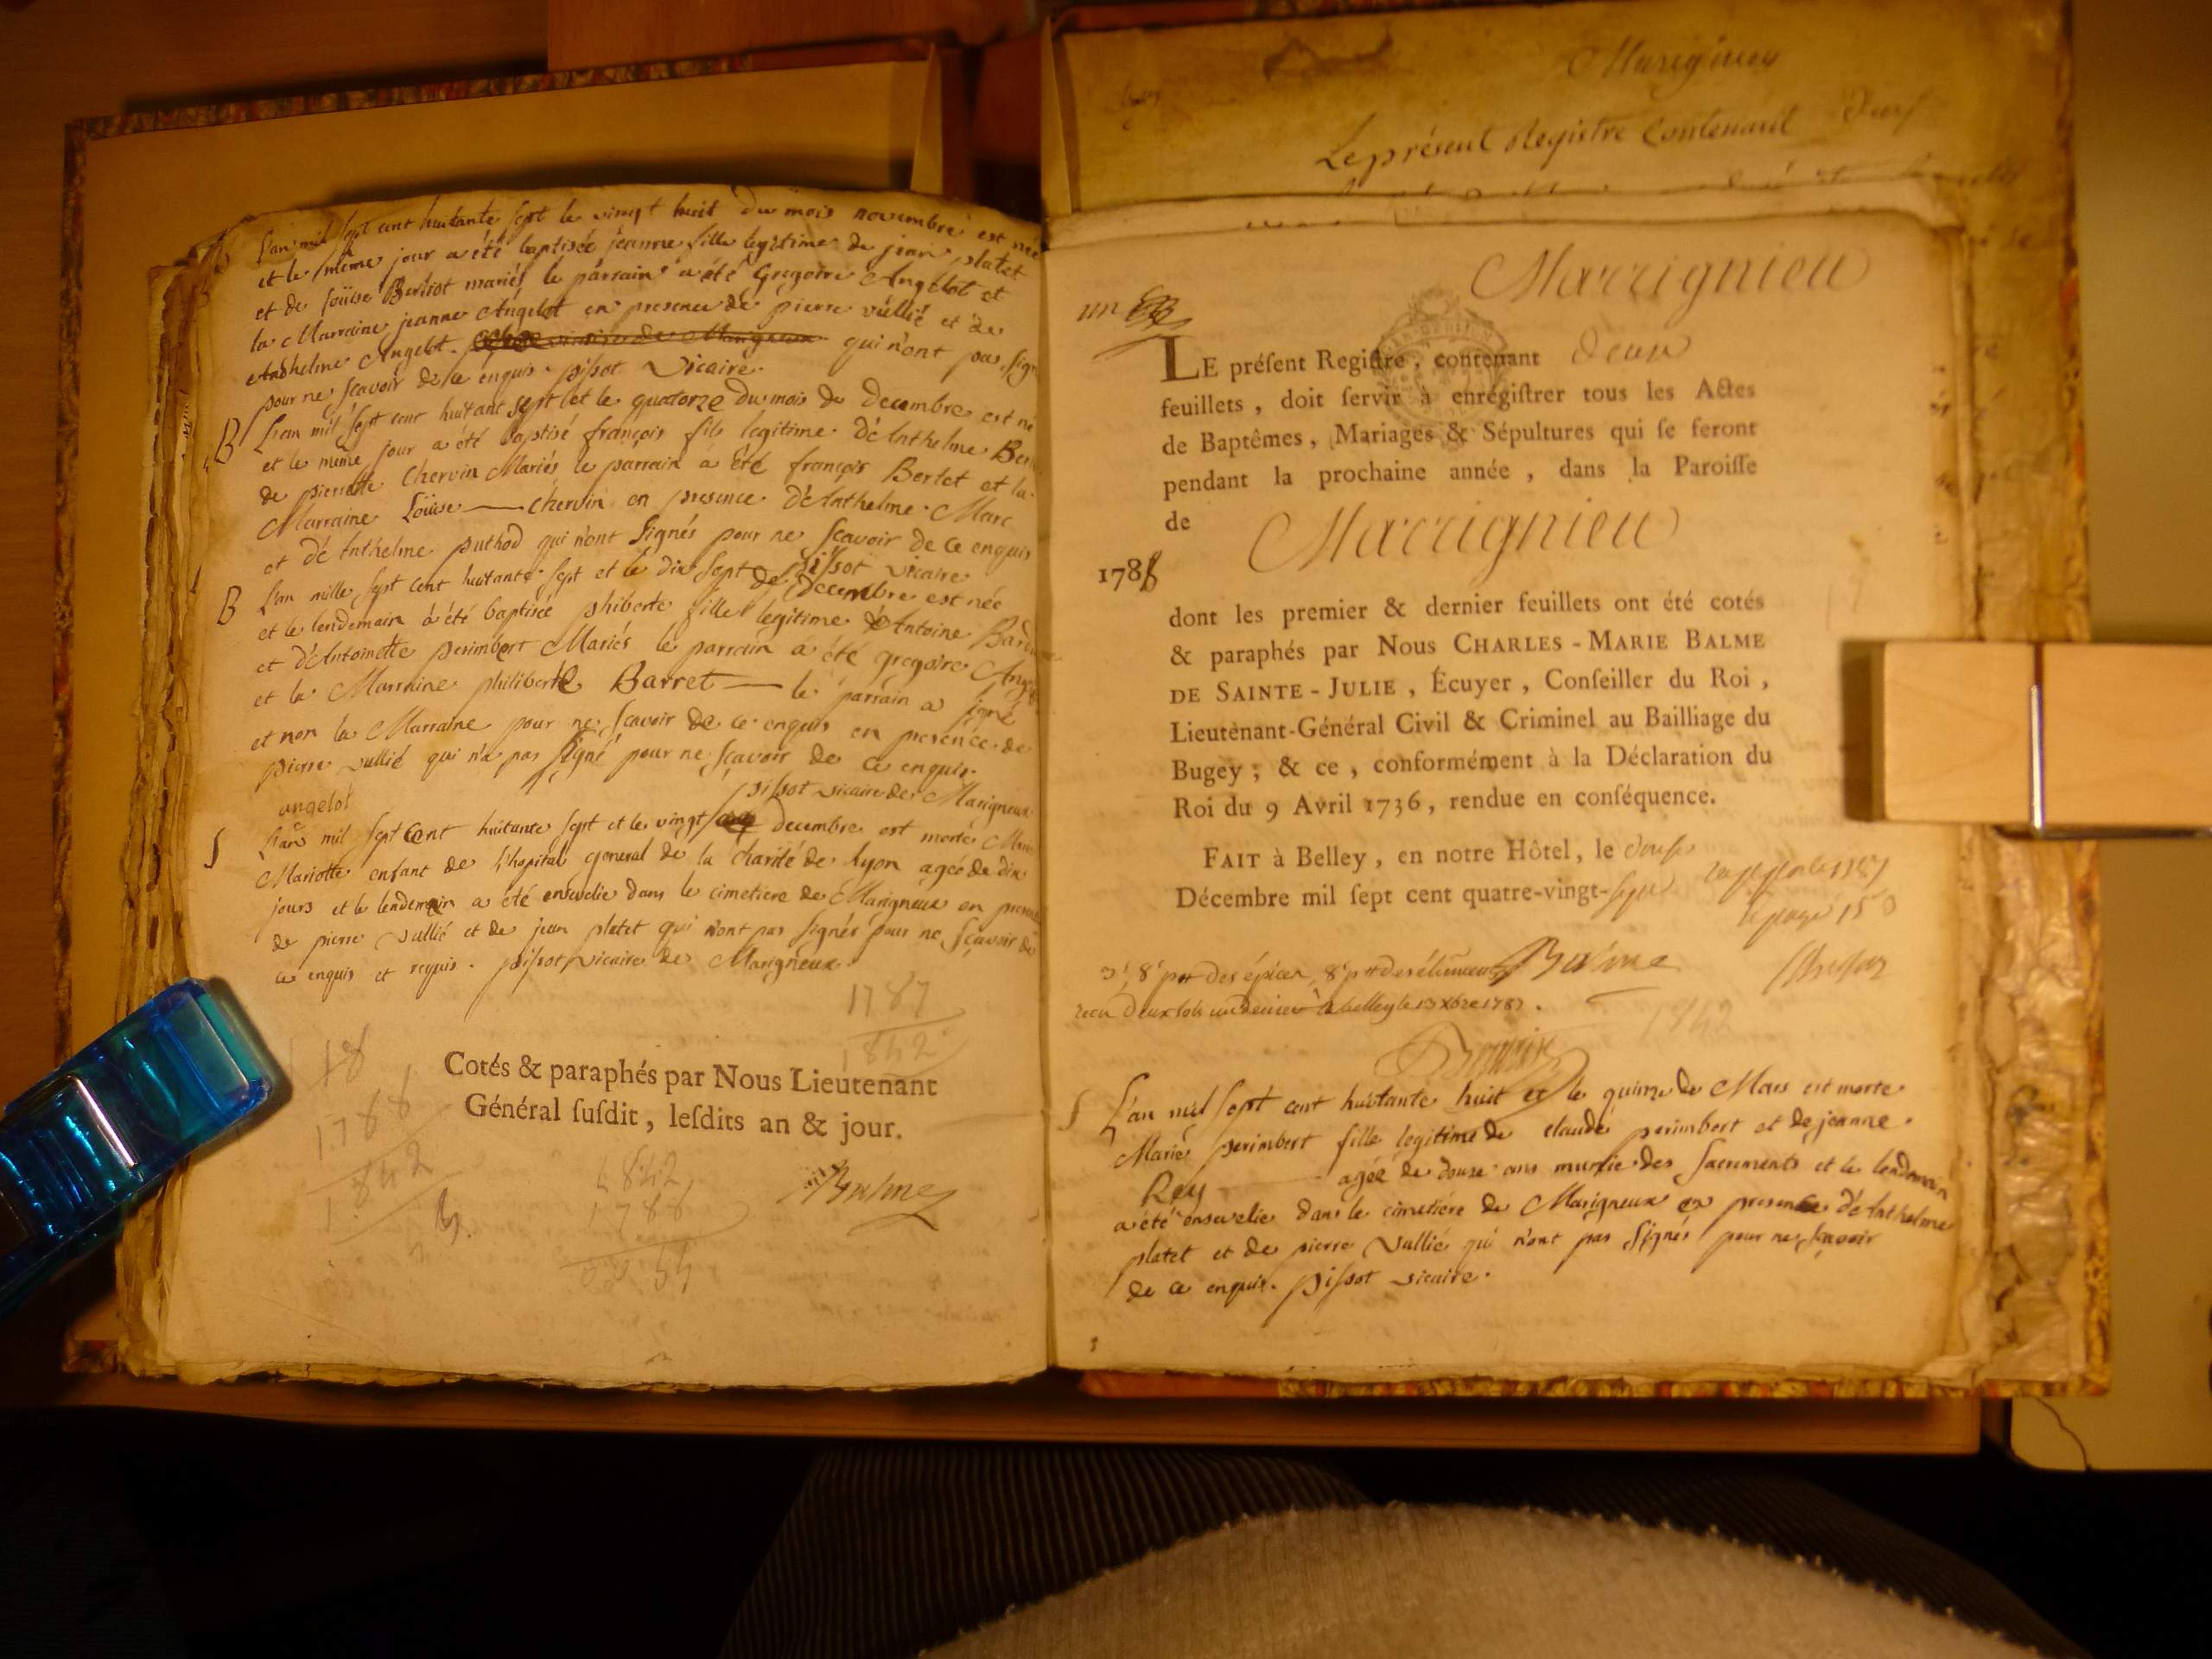 L'an mil sept cent huitante sept le vingt huit du mois novembre est née
et le même jour a été baptisée jeanne fille legitime de jean platet
et de Loüise Berliot mariés le parrain a été Gregoire Angelot et
la Marraine jeanne Angelot en presence de pierre vullié et de
Anthelme Angelot. qui n'ont pas signé
pour ne sçavoir de ce enquis. pissot vicaire.
B L'an mil sept cent huitant sept et le quatorze du mois de Decembre est né
et le même jour a été baptisé françois fils legitime d'Anthelme
de pierrette Chervin Mariés le parrain a été françois Bertet et la
Marraine Loüise — chervin en presence d'Anthelme Marc
et d'Anthelme puthod qui n'ont Signés pour ne sçavoir de ce enquis
pissot vicaire
B L'an mille sept cent huitante sept et le dix sept de decembre est née
et le lendemain a été baptisée phiberte fille legitime d'Antoine
et d'Antoinette perimbert Mariés le parrain a été gregoire
et la Marraine philiberte Barret — le parrain a signé
et non la Marraine pour ne sçavoir de ce enquis en presence de
pierre vullié qui n'a pas signé pour ne sçavoir de ce enquis.
angelot pissot vicaire de Marigneux
S L'an mil sept Cent huitante sept et le vingt decembre est morte
Mariotte enfant de l'hopital general de la charité de Lyon agée de dix
jours et le lendemain a été ensevelie dans le cimetiere de Marigneux en
de pierre vullié et de jean platet qui n'ont pas signés pour ne sçavoir de
ce enquis et requis. pissot vicaire de Marigneux.
1787
1842
18
Cotés & paraphés par Nous Lieutenant
Général susdit, lesdits an & jour.
1788
1842
1842
1788
54
Balme
Marigneu
Le présent Registre Contenant Deux
Marrignieu
un
LE présent Registre, contenant deux
feuillets, doit servir à enrégistrer tous les Actes
de Baptêmes, Mariages & Sépultures qui se feront
pendant la prochaine année, dans la Paroisse
de Marrignieu
1788
dont les premier & dernier feuillets ont été cotés
& paraphés par Nous CHARLES-MARIE BALME
DE SAINTE-JULIE, Écuyer, Conseiller du Roi,
Lieutenant-Général Civil & Criminel au Bailliage du
Bugey; & ce, conformément à la Déclaration du
Roi du 9 Avril 1736, rendue en conséquence.
FAIT à Belley, en notre Hôtel, le douse
Décembre mil sept cent quatre-vingt-sept
Balme
a belley le 13 xbre 1787.
1842
S L'an mil sept cent huitante huit et le quinze de Mars est morte
Marie perimbert fille legitime de claude perimbert et de jeanne
Rey agée de douze ans munie des sacrements et le lendemain
a été ensevelie dans le cimetiére de Marigneux en presence d'Anthelme
platet et de pierre vullié qui n'ont pas Signés pour ne sçavoir
de ce enquis. pissot vicaire.